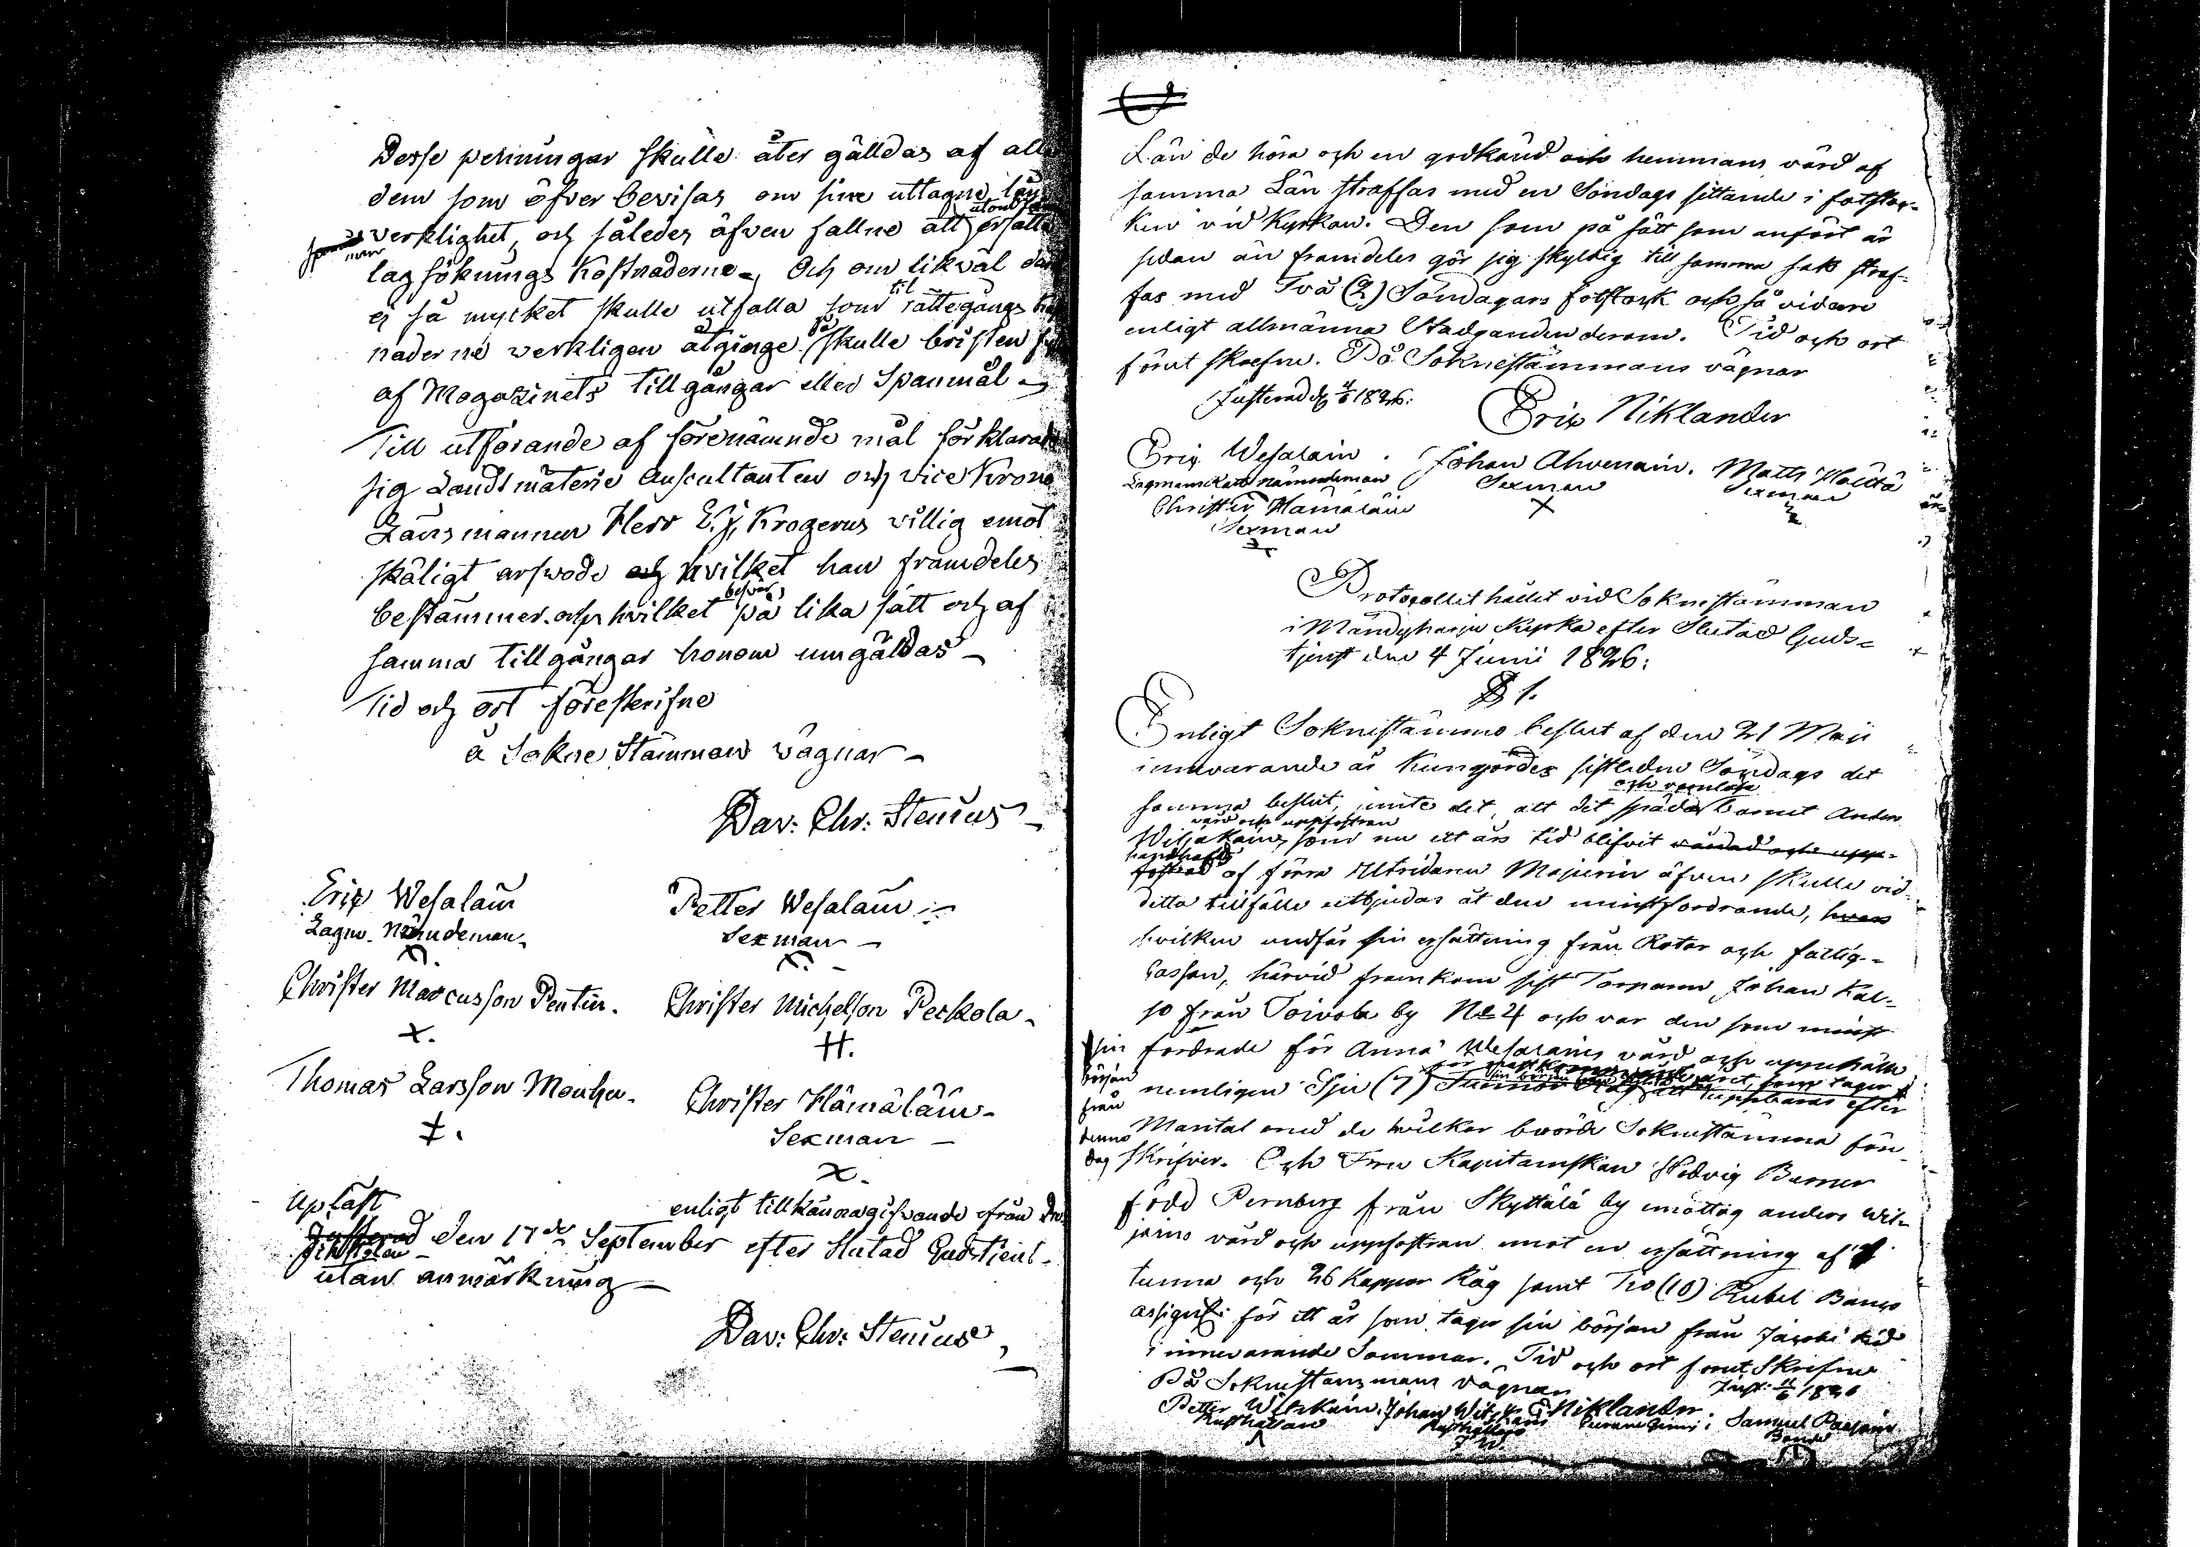 Desse penningar skulle åter gälldas af alla
dem som öfver bevisas om sine uttagne lån
verklighet, och således äfven fallne att ersätta
lagsöknings kostnaderne, Och om likväl
ej så mycket skulle utfalla som til rättegångs
naderne verkligen åtginge så skulle bristen
af Magazinets tillgångar eller Spanmål
Till utförande af förenämnde mål förklarade
sig Landtmäterie Auscultanten och vice Krono
Länsmannen Herr E. J. Krogerus villig emot
skäligt arfwode och hvilket han framdeles
bestämmer och hvilket besvär på lika sätt och af
samma tillgångar honom umgälldas
Tid och ort föreskrifne
å Sokne Stämmans vägnar
Dav: Chr: Stenius
Eric Wesalain
Petter Wesalain
Lagm. Nämdeman
Sexman
Christer Marcusson Pentin.
Christer Michelson Peckola
Thomas Larsson Monhu.
Christer Hämäläin
Sexman
Upläst
enligt tillkännagifvande från
Justerad den 17de September efter slutad Gudstienst
utan anmärkning
Dav: Chr: Stenius
Län de höra och en godkänd och hemmans värd af
samma Län straffas med en Söndags sittande i fotstoc-
ken vid Kyrkan. Den som på sätt som anfört är
sedan än framdeles gör sig skyldig till samma sak straf-
fas med Två (2) Söndagars fotstock och så vidare
enligt allmänna Stadganden derom. Tid och ort
förut skrefne. På Soknestämmans vägnar
Justerad d 4/6 1826.
Eric Niklander
Eric Wesalain. Johan Ahvenain. Matts Hölttä
Lagmans Rätts nämndeman Sexman Sexman
Christer Hämäläin
Sexman
Protocollet hållet vid Soknestämman
i Mändyharju Kyrka efter Slutad Guds-
tjenst den 4 Junii 1826.
§ 1.
Enligt Soknestämmo beslut af den 21 Maji
innevarande år kungjordes sistleden Söndags det
och vanlottade
samma beslut, jemte det, att det späda barnet Anders
vård och uppfostran
Wiljakain, som nu ett års tid blifvit vårdad och upp-
fostrad af förra Utridaren Majurin äfven skulle vid
detta tillfälle utbjudas åt den minstfordrande, hvars
hvilken undfår sin ersättning från Rotar och fattig-
cassan, härvid framkom sist Torparen Johan Kal-
so från Toivola by No 4 och var den som minst
fordrade för Anna Wesalains vård och uppehälle
sin början från denna dag
nemligen Sju (7) Tunnor Råg att uppbäras efter
Mantal med de vilkor berörde Soknestämma för-
skrifver. Och Fru Kapitainskan Hedvig Burmer
född Pernberg från Skyttälä by emottog Anders Wil-
jains vård och uppfostran emot en ersättning af 1
tunna och 26 Kappor Råg samt Tio (10) Rubel Banco
assignat: för ett år som tager sin början från Jacobi tid
innevarande Sommar. Tid och ort förut Skrifne
På Soknestämmans vägnar Just: 11/6 1826
Petter Wilskain. Johan E Niklander. Samuel
Rusthållare Rusthållare Bonde